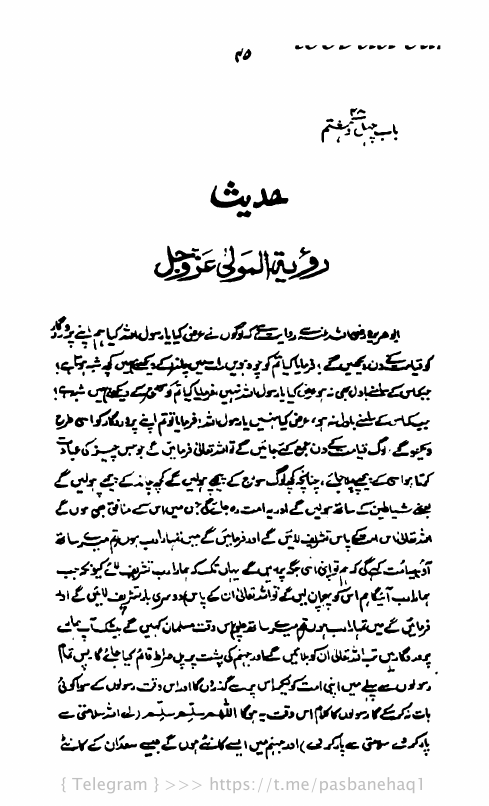 ۳۵
۴۸
باب چہل و ہشتم
حدیث
رؤیۃ المولیٰ عزوجل
ابوہریرہ رضی اللہ عنہ سے روایت ہے کہ لوگوں نے عرض کیا یا رسول اللہ کیا ہم اپنے پروردگار
کو قیامت کے دن دیکھیں گے؛ فرمایا کیا تم کو چودہویں رات میں چاند کے دیکھنے میں کچھ شبہ ہوتا ہے؛
جبکہ اس کے سامنے بادل بھی نہ ہو عرض کیا یا رسول اللہ نہیں، فرمایا کیا تم کو سورج کے دیکھنے میں شبہ ہے؛
جب کہ اس کے سامنے بادل نہ ہو، عرض کیا نہیں یا رسول اللہ؛ فرمایا تو تم اپنے پروردگار کو اسی طرح
دیکھو گے۔ لوگ قیامت کے دن جمع کئے جائیں گے تو اللہ تعالیٰ فرمائیں گے جو جس چیز کی عبادت
کرتا ہو اسی کے پیچھے چلا جائے، چنانچہ کچھ لوگ سورج کے پیچھے ہولیں گے کچھ چاند کے پیچھے ہولیں گے
بعضے شیاطین کے ساتھ ہولیں گے اور یہ امت رہ جائے گی جن میں اس کے منافق بھی ہوں گے
اللہ تعالیٰ اس امت کے پاس تشریف لائیں گے اور فرمائیں گے میں تمہارا رب ہوں تم میرے ساتھ
آؤ یہ امت کہے گی کہ ہم تو اپنی اسی جگہ پر رہیں گے یہاں تک کہ ہمارا رب تشریف لائے کیونکہ جب
ہمارا رب آئیگا ہم اس کو پہچان لیں گے تو اللہ تعالیٰ ان کے پاس دوسری بار تشریف لائیں گے اور
فرمائیں گے میں تمہارا رب ہوں تم میرے ساتھ چلو اس وقت مسلمان کہیں گے بیشک آپ ہمارے
پروردگار ہیں تب اللہ تعالیٰ ان کو بلائیں گے اور جہنم کی پشت پر پل صراط قائم کیا جائے گا۔ پس تمام
رسولوں سے پہلے میں اپنی امت کو لیکر اس پر سے گذروں گا اور اس وقت رسولوں کے سوا کوئی
بات نہ کر سکے گا رسولوں کا کلام اس وقت یہ ہوگا اللھم سلم سلم (اے اللہ سلامتی سے
پار کر دے سلامتی سے پار کر دے) اور جہنم میں ایسے کانٹے ہوں گے جیسے سعدان کے کانٹے
{ Telegram } >>> https://t.me/pasbanehaq1